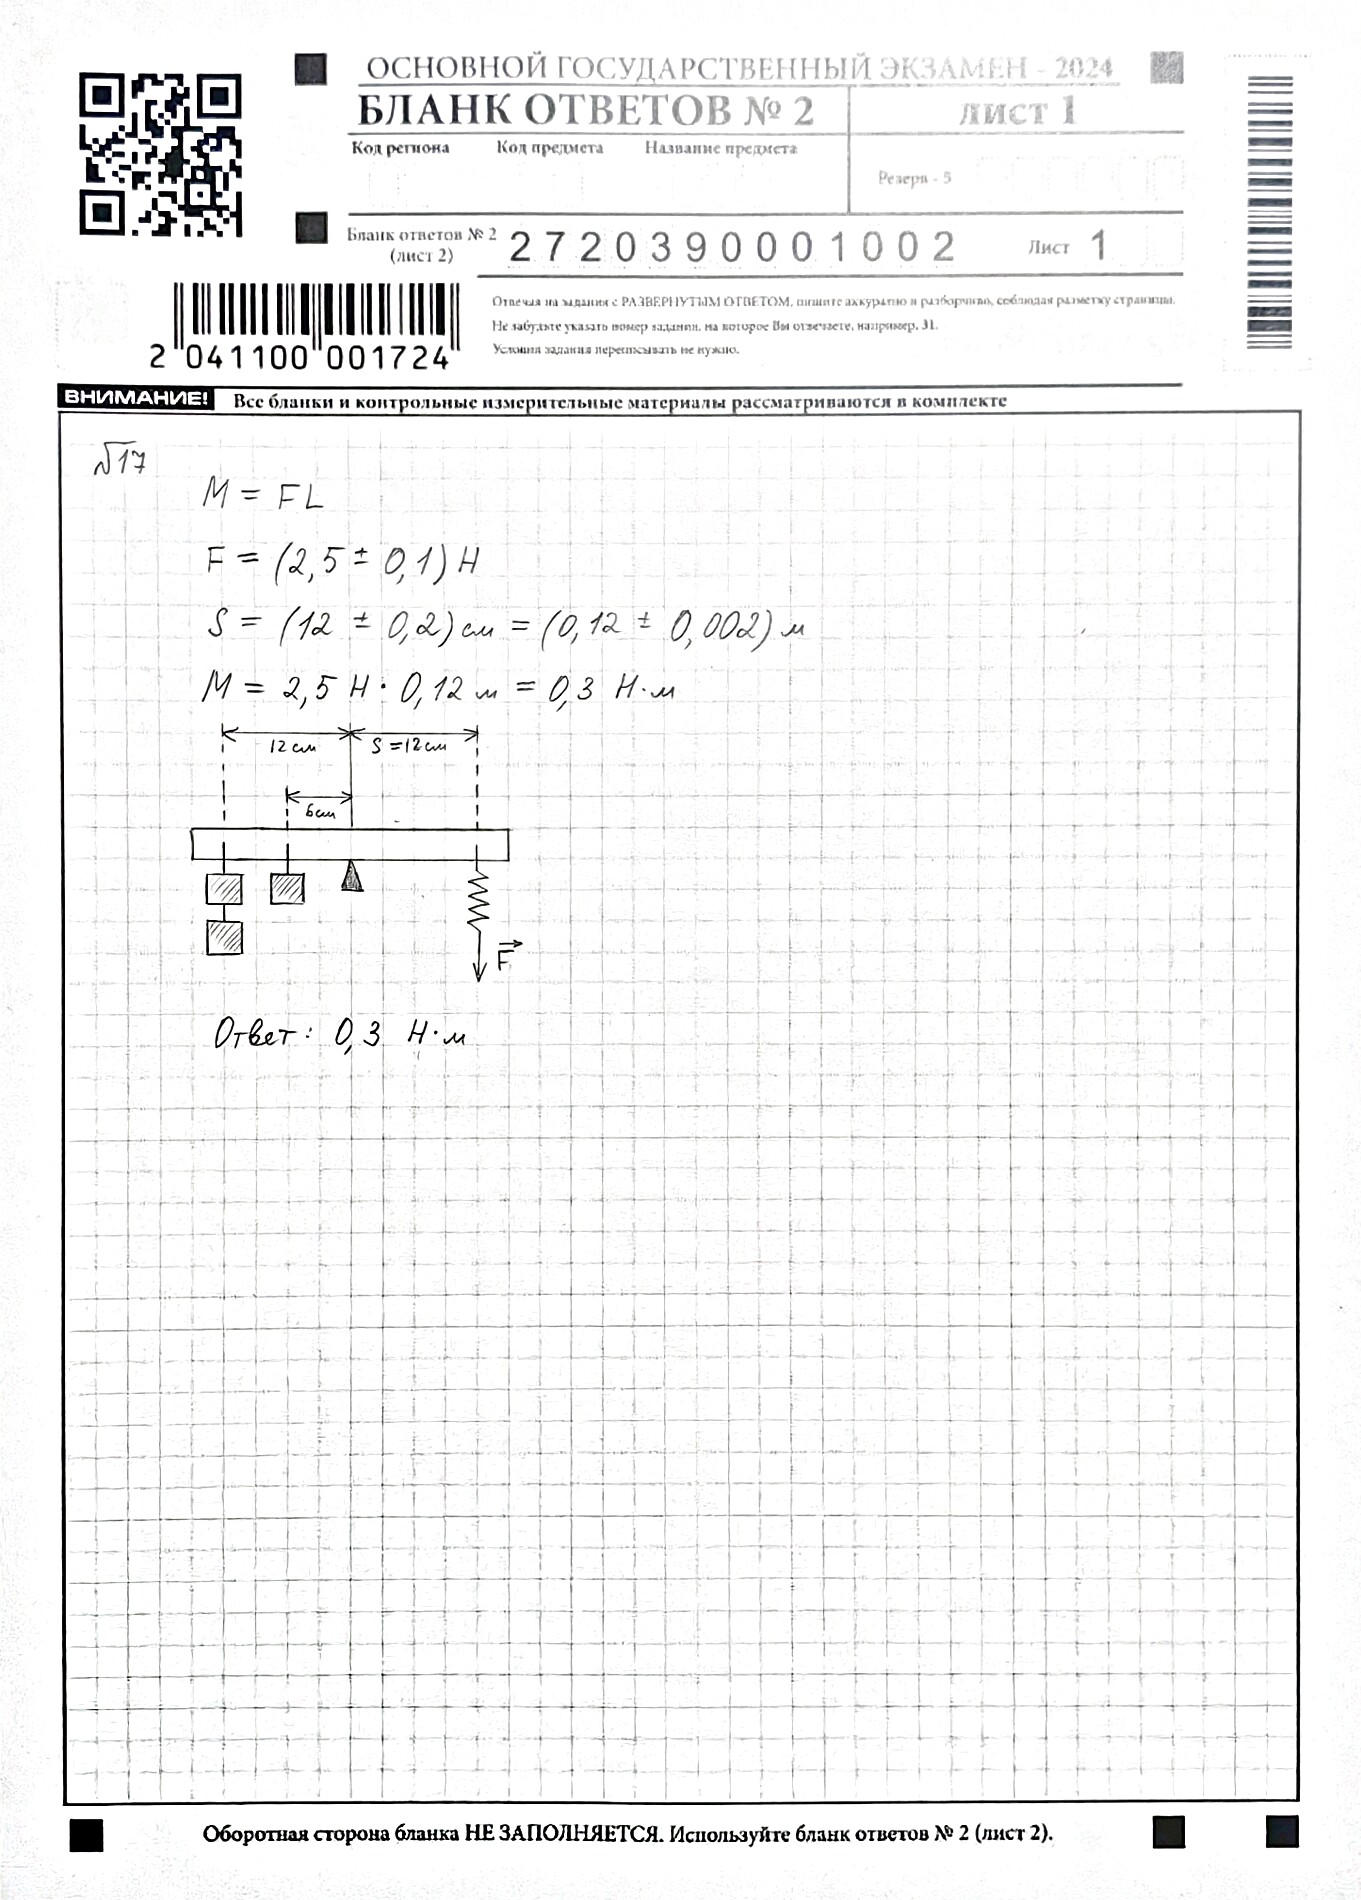 ОСНОВНОЙ ГОСУДАРСТВЕННЫЙ ЭКЗАМЕН - 2024
БЛАНК ОТВЕТОВ № 2
лист 1
Код региона Код предмета Название предмета
Резерв - 5
Бланк ответов № 2
(лист 2)
2720390001002
Лист 1
Отвечая на задания с РАЗВЕРНУТЫМ ОТВЕТОМ, пишите аккуратно и разборчиво, соблюдая разметку страницы.
Не забудьте указать номер задания, на которое Вы отвечаете, например, 31.
Условия задания переписывать не нужно.
2 041100 001724
ВНИМАНИЕ! Все бланки и контрольные измерительные материалы рассматриваются в комплекте
№17
M = FL
F = (2,5 ± 0,1) Н
S = (12 ± 0,2) см = (0,12 ± 0,002) м
M = 2,5 Н · 0,12 м = 0,3 Н·м
12 см S = 12 см
6 см
F
Ответ: 0,3 Н·м
Оборотная сторона бланка НЕ ЗАПОЛНЯЕТСЯ. Используйте бланк ответов № 2 (лист 2).